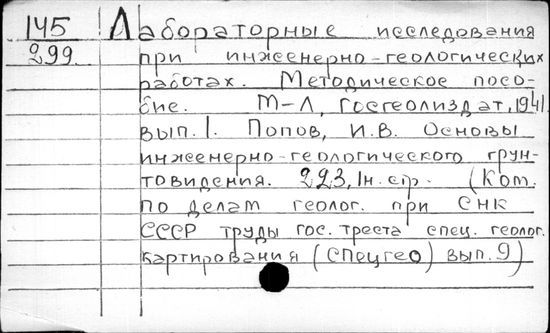 145
299.
Лабораторные исследования
при инженерно-геологических
работах. Методическое посо-
бие. М-Л, Госгеолиздат, 1941.
вып. 1. Попов, И.В. Основы
инженерно-геологического грун-
товидения. 223, 1н. стр. (Ком.
по делам геолог. при СНК
СССР труды гос. треста спец. геолог.
картирования (Спецгео) вып. 9)